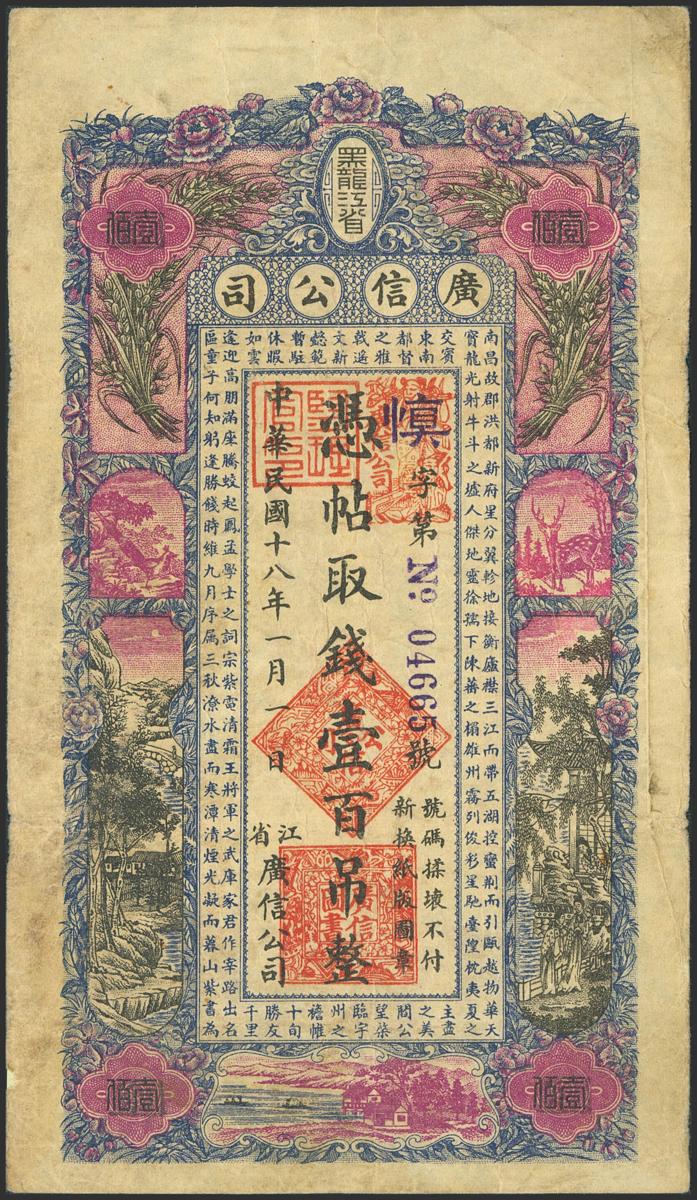 黑龍江省
壹佰
壹佰
廣信公司
南昌故郡洪都新府星分翼軫地接衡廬襟三江而帶五湖控蠻荊而引甌越物華天
寶龍光射牛斗之墟人傑地靈徐孺下陳蕃之榻雄州霧列俊彩星馳臺隍枕夷夏之
交賓
主盡
東南
之美
都督
閻公
之雅
望棨
戟遥
臨宇
文新
州之
懿範
襜帷
暫駐
十旬
休暇
勝友
如雲
千里
逢迎高朋滿座騰蛟起鳳孟學士之詞宗紫電清霜王將軍之武庫家君作宰路出名
區童子何知躬逢勝餞時維九月序属三秋潦水盡而寒潭清煙光凝而暮山紫書為
慎字第 No 04665 號
號碼揉壞不付
新換紙版圖章
憑帖取錢壹百吊整
中華民國十八年一月一日
江省廣信公司
壹佰
壹佰